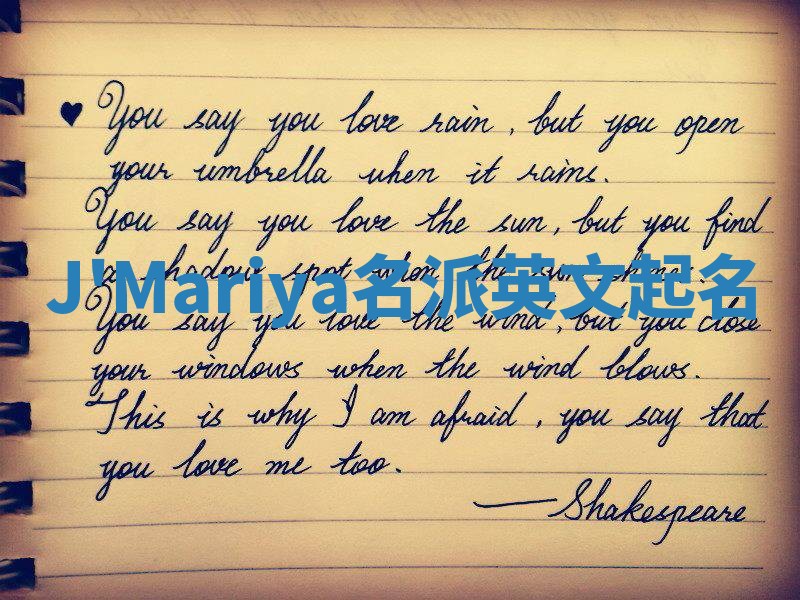 ♥ You say you love rain, but you open
your umbrella when it rains.
You say you love the sun, but you find
a shadow spot when the sun shines.
J'Mariya名派英文起名
You say you love the wind, but you close
your windows when the wind blows.
This is why I am afraid, you say that
you love me too.
—Shakespeare